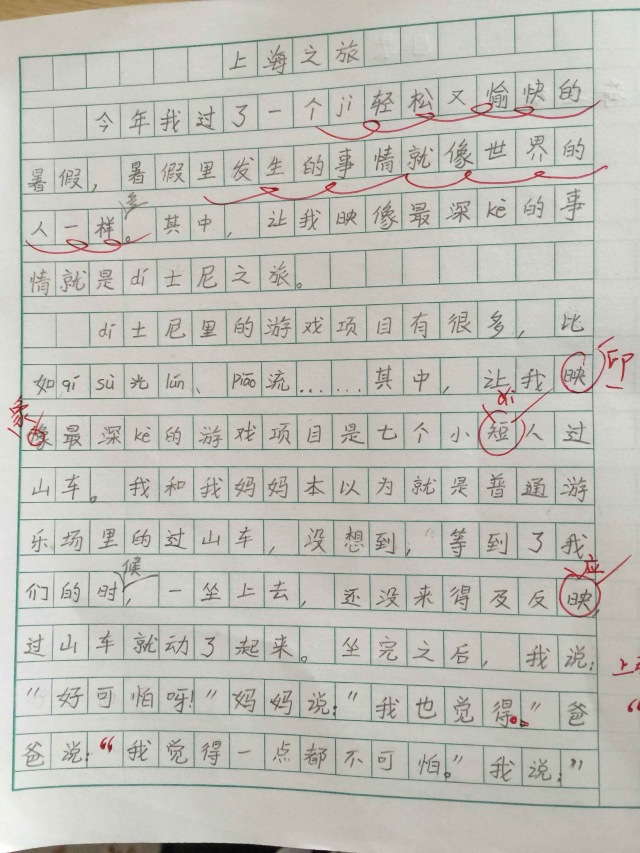 上海之旅
今年我过了一个jí轻松又愉快的
暑假，暑假里发生的事情就像世界的
多
人一样。其中，让我映像最深kè的事
情就是dí士尼之旅。
dí士尼里的游戏项目有很多，比
如qī sù光lún、piāo流……其中，让我映
印
象
ǎi
像最深kè的游戏项目是七个小短人过
山车。我和我妈妈本以为就是普通游
乐场里的过山车，没想到，等到了我
候
应
们的时，一坐上去，还没来得及反映，
过山车就动了起来。坐完之后，我说：
“好可怕呀！”妈妈说：“我也觉得。”爸
爸说：“我觉得一点都不可怕。”我说：“